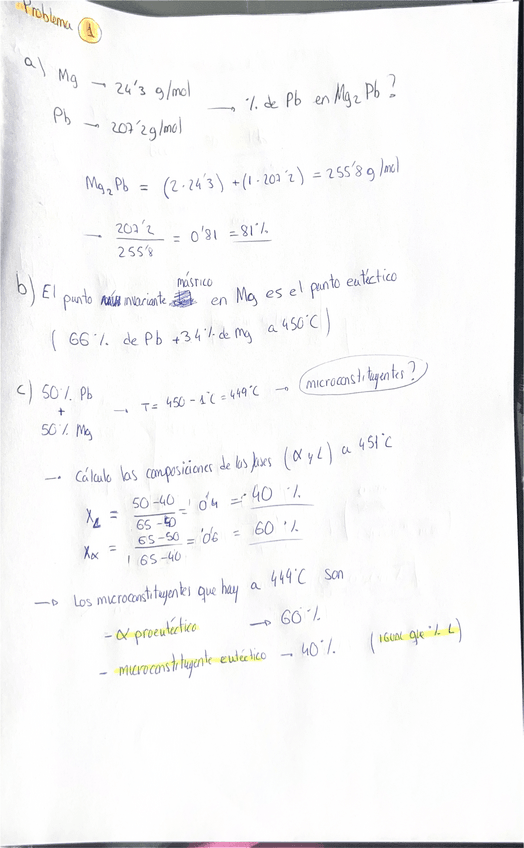 Problema 1
a) Mg → 24'3 g/mol
→ % de Pb en Mg₂Pb?
Pb → 207'2 g/mol
Mg₂Pb = (2·24'3) + (1·207'2) = 255'8 g/mol
→ 207'2 / 255'8 = 0'81 = 81%
b) El punto invariante másrico en Mg es el punto eutéctico
(66% de Pb + 34% de Mg a 450°C)
c) 50% Pb + 50% Mg → T = 450 - 1°C = 449°C → microconstituyentes?
→ Cálculo las composiciones de las fases (α y L) a 451°C
X_L = (50-40) / (65-40) = 0'4 = 40%
X_α = (65-50) / (65-40) = 0'6 = 60%
→ Los microconstituyentes que hay a 449°C son
- α proeutéctico → 60%
- microconstituyente eutéctico → 40% (igual que % L)